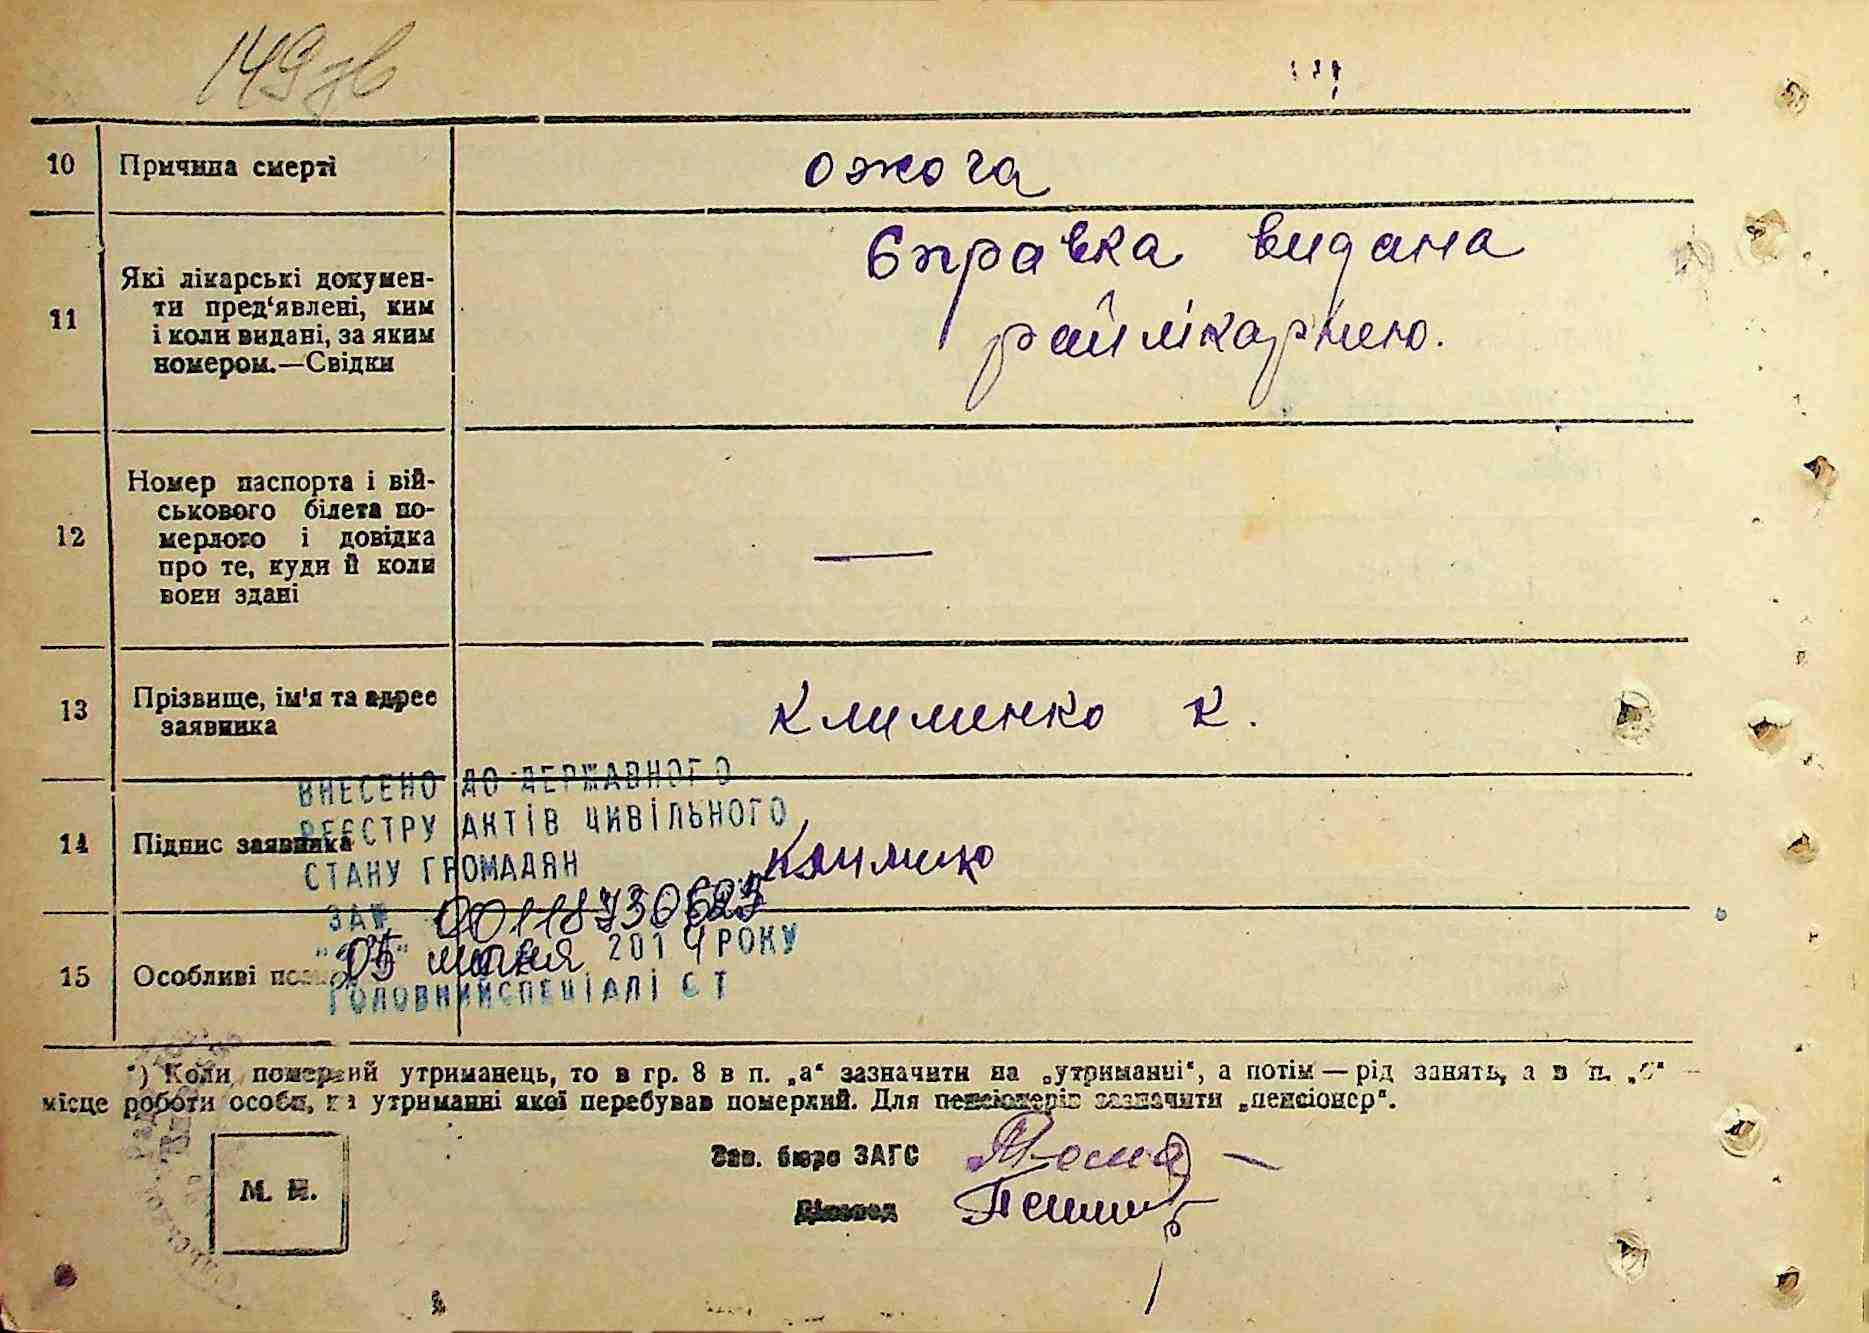 149зв
10 Причина смерті ожога
11 Які лікарські докумен-
ти пред'явлені, ким
і коли видані, за яким
номером.—Свідки
Справка видана
райлікарнею.
12 Номер паспорта і вій-
ськового білета по-
мерлого і довідка
про те, куди й коли
вони здані
—
13 Прізвище, ім'я та адрес
заявника
Клименко К.
ВНЕСЕНО ДО ДЕРЖАВНОГО
РЕЄСТРУ АКТІВ ЦИВІЛЬНОГО
14 Підпис заявника
СТАНУ ГРОМАДЯН
ЗА №
"05" липня 2014 РОКУ
15 Особливі
ГОЛОВНИЙ СПЕЦІАЛІСТ
*) Коли померлий утриманець, то в гр. 8 в п. „а" зазначити на „утриманні", а потім — рід занять, а в п.
місце роботи особи, на утриманні якої перебував померлий. Для пенсіонерів зазначити „пенсіонер".
Зав. бюро ЗАГС
Діловод
М. П.